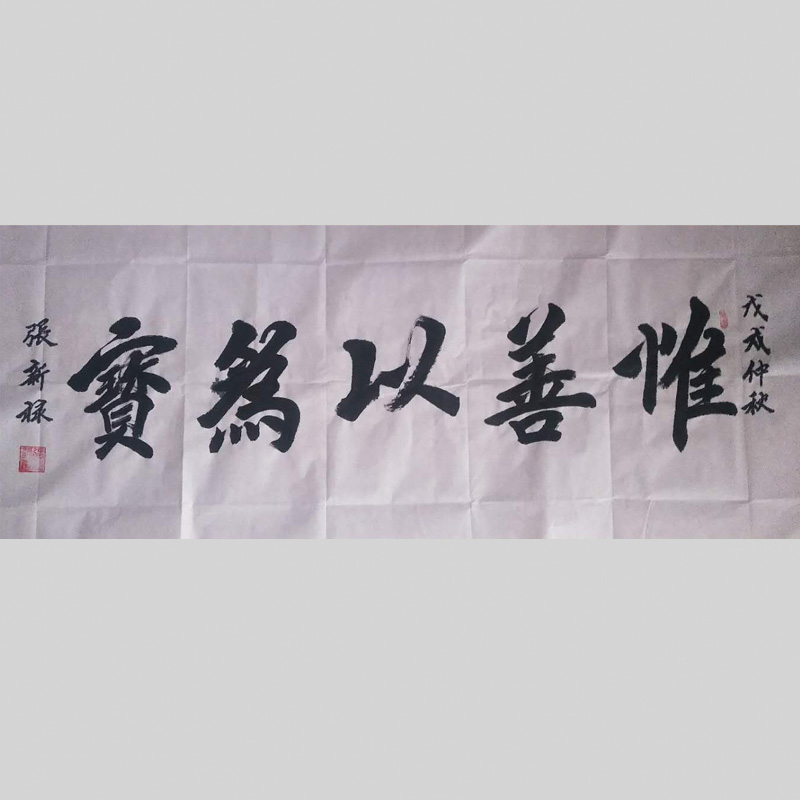 戊戌仲秋
惟善以為寶
張新祿